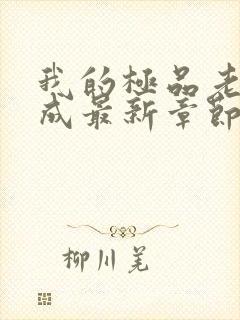 我的極品老
成最新章節
柳川羌